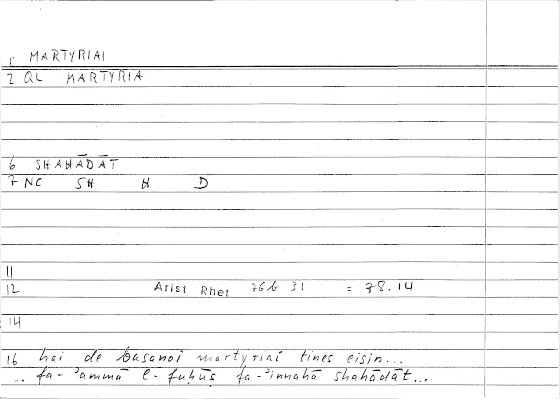 1 MARTYRIAI
2 QL MARTYRIA
6 SHAHĀDĀT
7 NC SH H D
11
12 Arist Rhet 76b 31 = 78.14
14
16 hai de basanoi martyriai tines eisin...
.. fa-'ammā l-fuḥūṣ fa-'innahā shahādāt...